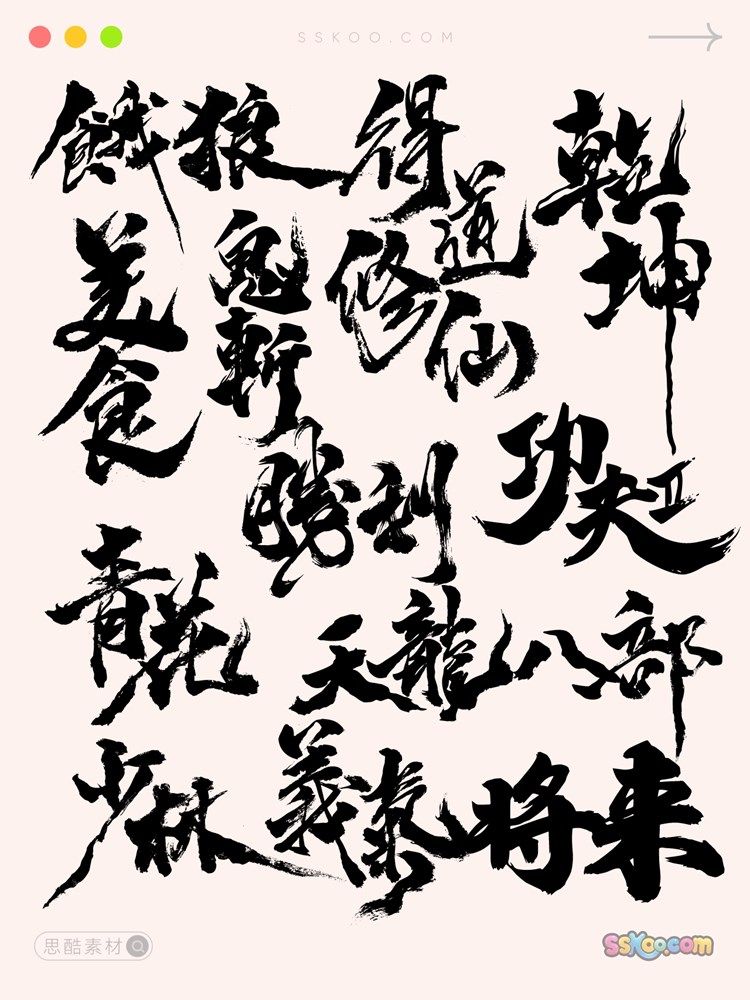 SSKOO.COM
餓狼
得道
乾坤
美食
鬼斬
修仙
勝利
功夫II
青花
天龍八部
少林
義氣
将来
思酷素材
sskoo.com